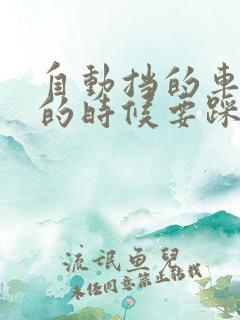 自動挡的車
的時候要踩
流氓魚兒
未经同意禁止转载